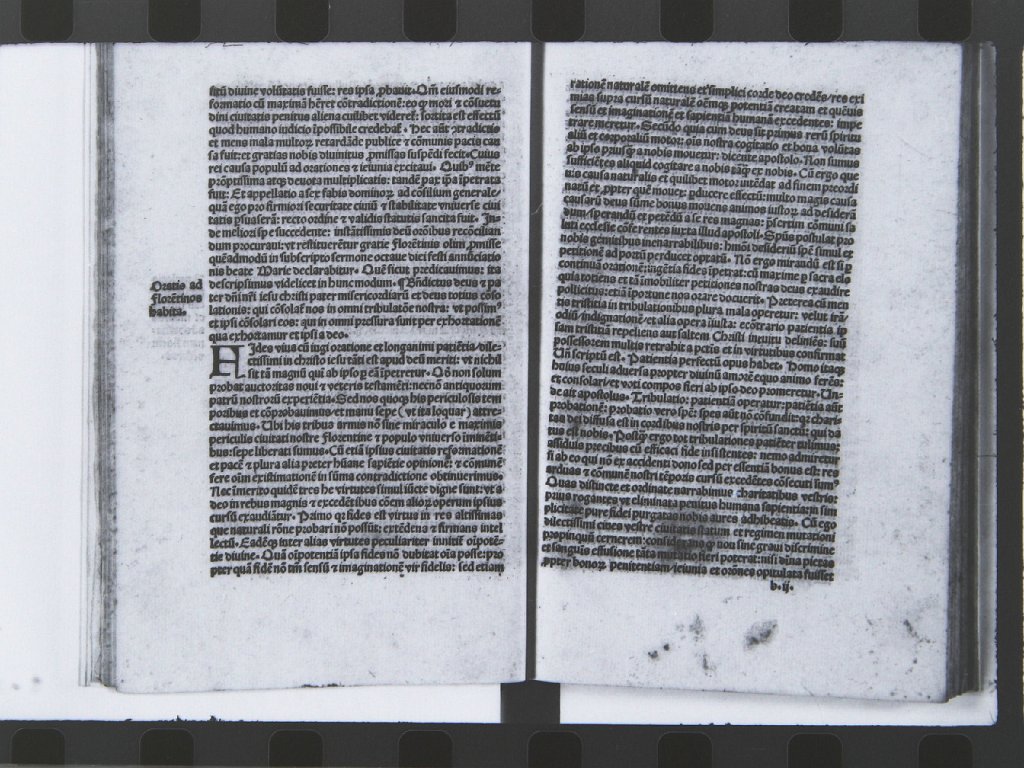 situ̅ divine volu̅tatis fuisse: res ipsa ꝓbauit. Qm̅ eiusmodi re-
formatio cu̅ maxima̅ he̅ret co̅tradictione̅: eo ꝙ mori & co̅suetu
dini ciuitatis penitus aliena cuilibet videret̉: sortita est effectu̅
quod humano iudicio i̅possibile credebat̉. Hec aut̅ ꝯtradictio
et mens mala multoꝝ retarda̅de publice & co̅munis pacis cau
sa fuit: et gratias nobis diuinitus ꝓmissas suspe̅di fecit. Cuius
rei causa populu̅ ad orationes & ieiunia excitaui. Quibꝰ me̅te
pro̅ptissima atꝙ devota multiplicatis: tande̅ pax ip̅a i̅petrata
fuit: Et appellatio a sex fabis dominoꝝ ad co̅silium generale/
qua ego pro firmiori securitate ciuiu̅ & stabilitate vniuerse ciui
tatis p̲suasera̅: recto ordine & validis statutis sancita fuit. In-
de meliori spe succedente: insta̅tissimis deu̅ oro̅ibus reco̅cilian
dum procuraui: vt restitueret̉ur gratie Florẽtinis olim ꝓmisse
que̅admodu̅ in subscripto sermone octaue diei festi annu̅ciatio
nis beate Marie declarabitur. Que̅ sicut predicauimus: ita
descripsimus videlicet in hunc modum. ¶ Bn̅dictus deus & pa
ter dn̅i nr̅i iesu christi pater misericordiaru̅ et deus totius co̅so
lationis: qui co̅solat̉ nos in omni tribulatio̅e nostra: vt possimꝰ
et ipsi co̅solari eos: qui in omni pressura sunt per exhortatione̅
qua exhortamur et ipsi a deo.
Oratio ad
Flore̅tinos
habita.
FIdes viua cu̅ iugi oratione et longanimi patie̅tia/dile-
ctissimi in christo iesu ta̅ti est apud deu̅ meriti: vt nichil
sit ta̅ magnu̅ qui ab ipso p̲ ea̅ i̅petretur. Qd̅ non solum
probat auctoritas noui & veteris testame̅ti: necno̅ antiquorum
patru̅ nostroru̅ experie̅tia. Sed nos quoꝙ his periculosis tem
poribus et co̅probauimus/et manu sepe (vt ita loquar) attre-
ctauimus. Ubi his tribus armis no̅ sine miraculo e maximis
periculis ciuitati nostre Florentine & populo vniuerso imine̅ti-
bus: sepe liberati sumus. Cu̅ etia̅ ipsius ciuitatis reformatione̅
et pace̅ & plura alia preter hu̅ane sapie̅tie opinione̅: & co̅mune̅
fere oi̅m existimatione̅ in su̅ma contradictione obtinuerimus.
Nec i̅merito quide̅ tres he virtutes simul iu̅cte digne sunt: vt a
deo in rebus magnis & excede̅tibus co̅em alioꝝ operum ipsius
cursu̅ exaudia̅tur. Primo ꝙ fides est virtus in res altissimas
que naturali ro̅ne probari no̅ possu̅t: exte̅dens & firmans intel
lectu̅. Eade̅ꝙ inter alias virtutes peculiariter innitit̉ oi̅pote̅-
tie diuine. Qua̅ oi̅potentia̅ ipsa fides no̅ dubitat oi̅a posse: pro
pter qua̅ fide̅ no̅ tm̅ sensu̅ & imaginatione̅ vir fidelis: sed etiam
ratione̅ naturale̅ omittens et simplici corde deo crede̅s/res exi
mias supra cursu̅ naturale̅ oe̅mꝙ potentia̅ creatam et que̅uis
sensu̅ et imaginatione̅ et sapientia̅ humana̅ excedentes: impe
trare meretur. Secu̅do quia cum deus sit primus reru̅ spiritu
aliu̅ et corporaliu̅ motor: oi̅s nostra cogitatio et bona volu̅tas
ab ipso priusꝙ̅ a nobis mouetur: dicente apostolo. Non sumus
sufficie̅tes aliquid cogitare a nobis ta̅ꝙ̅ ex nobis. Cu̅ ergo que
uis causa naturalis et quilibet motor inte̅dat ad finem preordi
natu̅ et ꝓpter que̅ mouet: p̲ducere effectu̅: multo magis causa
causaru̅ deus su̅me bonus mouens animos iustoꝝ ad desidera̅
dum/spera̅du̅ et pete̅du̅ a se res magnas: p̅sertim co̅muni sa
luti ecclesie co̅ferentes iuxta illud apostoli. Sp̅us postulat pro
nobis gemitibus inenarrabilibus: hm̅o̅i desideriu̅ spe̅ simul et
petitione̅ ad portu̅ perducet optatu̅. No̅ ergo mirandu̅ est si p̲
continua̅ oratione̅: inge̅tia fides i̅petrat: cu̅ maxime p̲ sacra elo
quia totiens et ta̅ imobiliter petitiones nostras deus exaudire
pollicitus: etia̅ i̅portune nos orare docuerit. Preterea cu̅ men
tis tristitia in tribulationibus plura mala operetur: velut ira̅/
odiu̅/indignatione̅ et alia opera iniusta: eco̅trario patientia ip
sam tristitia̅ repellens aut saltem Christi intuitu delinie̅s: suu̅
possessorem multis retrahit a pctis et in virtutibus confirmat
Un̅ scriptu̅ est. Patientia perfectu̅ opus habet. Homo itaꝙ
huius seculi aduersa propter diuinu̅ amore̅ equo animo fere̅s:
et consolari et voti compos fieri ab ipso deo promeretur. Un-
de ait apostolus. Tribulatio: patientia̅ operatur: patie̅tia aut̅
probatione̅: probatio vero spe̅: spes aut̅ no̅ co̅fundit: ꝙ chari-
tas dei diffusa est in cordibus nostris per spiritu̅ sanctu̅: qui da
tus est nobis. Postꝙ̅ ergo tot tribulationes patie̅ter tulimus:
assiduis precibus cu̅ efficaci fide insistentes: nemo admiretur
si ab eo qui no̅ ex accidenti dono sed per essentia̅ bonus est: res
arduas & co̅mune̅ nostri te̅poris cursu̅ excede̅tes co̅secuti sumꝰ
Quas distincte et ordinate narrabimus charitatibus vestris:
prius rogantes vt eliminata penitus humana sapientia: in sim
plicitate pure fidei purgatas nobis aures adhibeatis. Cu̅ ego
dilectissimi ciues vestre ciuitatis statum et regimen mutationi
propinqu̅u̅ cernerem: considerare̅ꝙ ꝙ non sine graui discrimine
et sanguis effusione ta̅ta mutatio fieri poterat: nisi diui̅a pietas
ꝓpter bonoꝝ penitentiam/ieiunia et oro̅nes opitulata fuisset
b.ij.